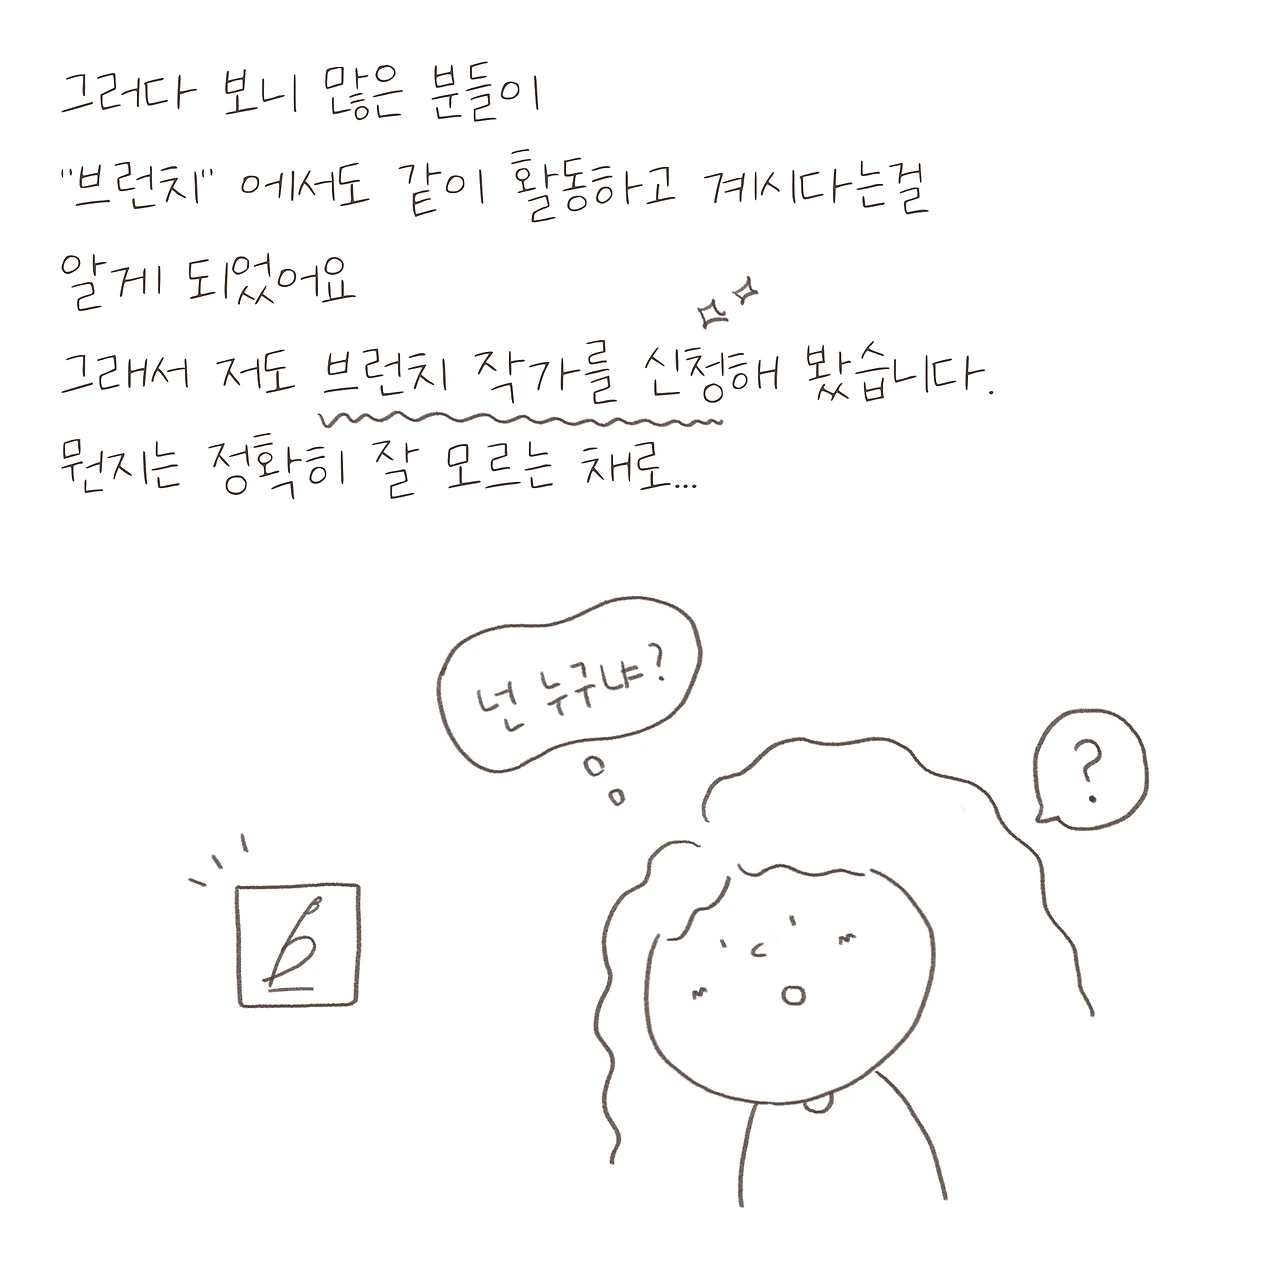 그러다 보니 많은 분들이
"브런치" 에서도 같이 활동하고 계시다는걸
알게 되었어요
그래서 저도 브런치 작가를 신청해 봤습니다.
뭔지는 정확히 잘 모르는 채로...
넌 누구냐?
?
b